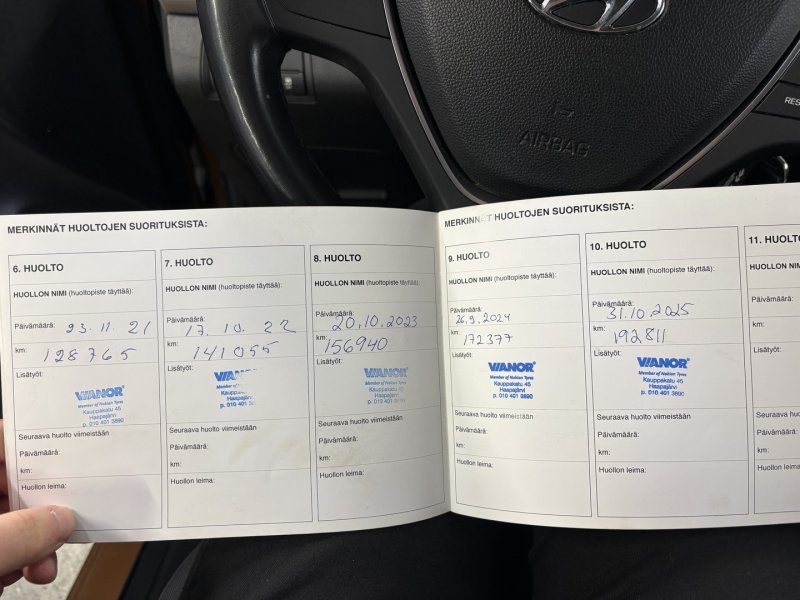 AIRBAG
RES
MERKINNÄT HUOLTOJEN SUORITUKSISTA:
6. HUOLTO
HUOLLON NIMI (huoltopiste täyttää):
Päivämäärä: 23.11.21
km: 128765
Lisätyöt:
VIANOR
Member of Nokian Tyres
Kauppakatu 45
Haapajärvi
p. 010 401 3890
Seuraava huolto viimeistään
Päivämäärä:
km:
Huollon leima:
7. HUOLTO
HUOLLON NIMI (huoltopiste täyttää):
Päivämäärä: 17.10.22
km: 141055
Lisätyöt:
Kauppakatu
Haapajärvi
p. 010 401 3
Seuraava huolto viimeistään
Päivämäärä:
km:
Huollon leima:
8. HUOLTO
HUOLLON NIMI (huoltopiste täyttää):
Päivämäärä: 20.10.2023
km: 156940
Lisätyöt:
VIANOR
Member of Nokian Tyres
Kauppakatu 45
Haapajärvi
p. 010 401
Seuraava huolto viimeistään
Päivämäärä:
km:
Huollon leima:
MERKINNÄT HUOLTOJEN SUORITUKSISTA:
9. HUOLTO
HUOLLON NIMI (huoltopiste täyttää):
Päivämäärä: 26.9.2024
km: 172377
Lisätyöt:
VIANOR
Member of Nokian Tyres
Kauppakatu 45
Haapajärvi
p. 010 401 3890
Seuraava huolto viimeistään
Päivämäärä:
km:
Huollon leima:
10. HUOLTO
HUOLLON NIMI (huoltopiste täyttää):
Päivämäärä: 31.10.2025
km: 192811
Lisätyöt:
VIANOR
Member of Nokian Tyres
Kauppakatu 45
Haapajärvi
p. 010 401 3890
Seuraava huolto viimeistään
Päivämäärä:
km:
Huollon leima:
11. HUOLT
HUOLLON NIM
Päivämäärä:
km:
Lisätyöt:
Seuraava hu
Päivämäärä
km:
Huollon le